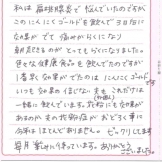 私は扁桃悪臭で悩んでいたのですが
このにんにくゴールドを飲んで3日位に
効果がでて痛みがらくになり
朝起きるのがとてもらくになりました。
色々な健康食品を飲んでたのですが
1番早く効果がでたのはにんにくゴールドです
いつも効果の信じない夫も(中性脂肪)これだけは
一緒に飲んでいます。花粉にも効果が
あるのか夫の花粉症がおどろく事に
今年はほとんどありません。ビックリしてます
毎月割引券で待っています。ありがとうございました。